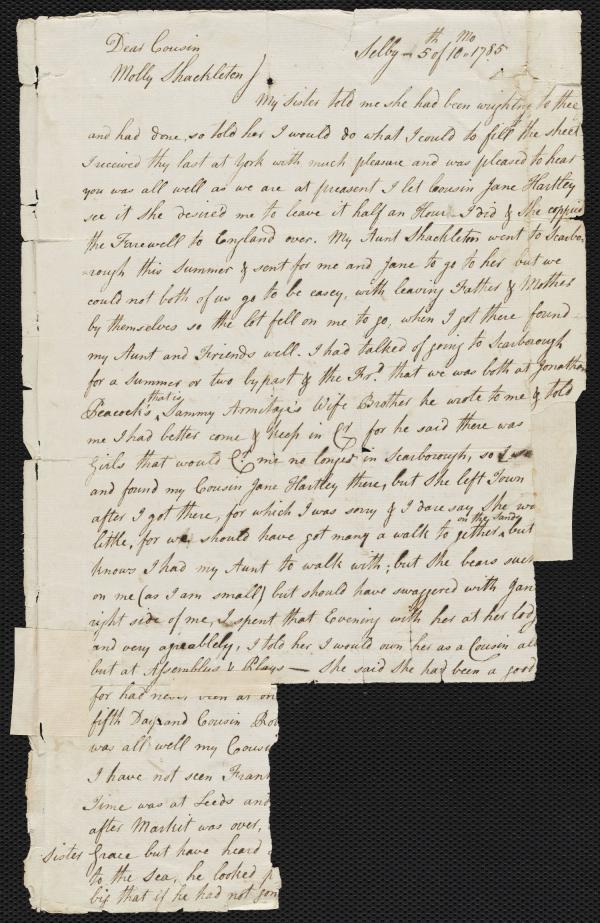 Dear Cousin
Selby - 5th of 10 Mo 1785
Molly Shackleton
My Sister told me she had been wrighting to thee
and had done, so told her I would do what I could to fill the sheet
I received thy last at York with much pleasure and was pleased to hear
you was all well as we are at preasent I let Cousin Jane Hartley
see it she desired me to leave it half an Hour I did & she coppied
the Farewell to England over. My Aunt Shackleton went to Scarbo-
-rough this Summer & sent for me and Jane to go to her but we
could not both of us go to be easey, with leaving Father & Mother
by themselves so the lot fell on me to go, when I got there found
my Aunt and Friends well. I had talked of going to Scarborough
for a Summer or two bypast & the Frd. that we was both at Jonathan
Peacock's that is Sammy Armitage's Wife Brother he wrote to me & told
me I had better come & keep in Cr for he said there was
Girls that would Cr. me no longer in Scarborough, so I
and found my Cousin Jane Hartley there, but she left Town
after I got there, for which I was sorry & I dare say She
little, for we should have got many a walk to gether on the Sands but
knows I had my Aunt to walk with; but She bears such
on me (as I am small) but should have swaggered with Jan
right side of me, I spent that Evening with her at her Lod
and very agreablely, I told her I would own her as a Cousin al
but at Assemblus & Plays - She said She had been a good
for had never been at on
fifth Day and Cousin Ro
was all well my Cousi
I have not seen Frank
Time was at Leeds and
after Markit was over,
Sister Grace but have heard
to the Sea, he looked
big that if he had not gon